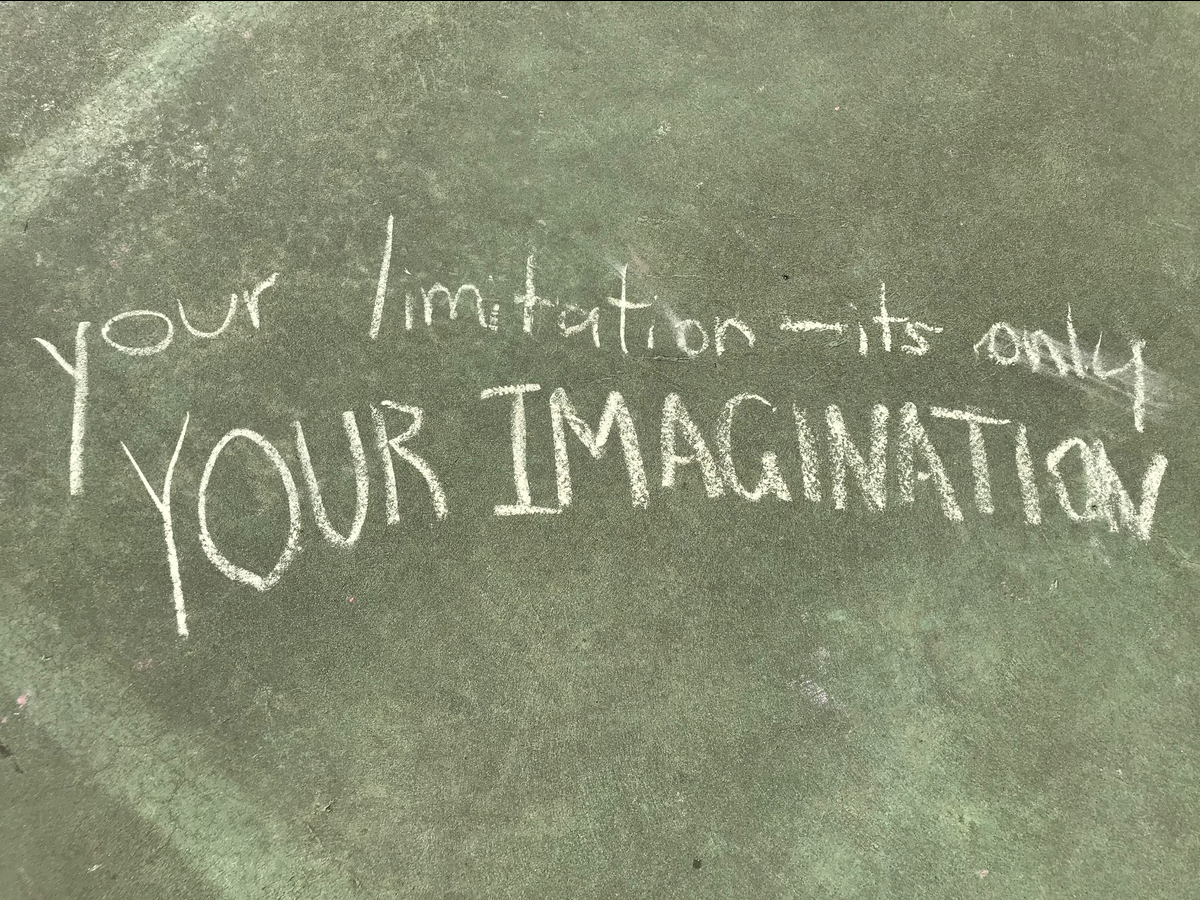 your limitation - its only
YOUR IMAGINATION